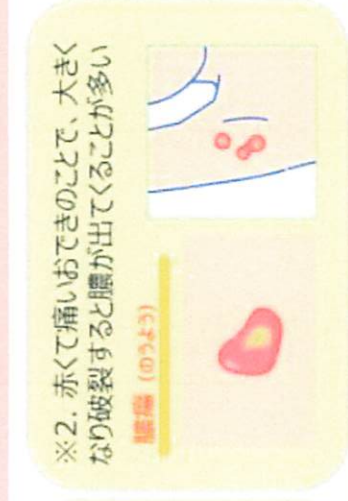 ※2. 赤くて痛いおできのことで、大きく
なり破裂すると膿が出てくることが多い
膿瘍（のうよう）